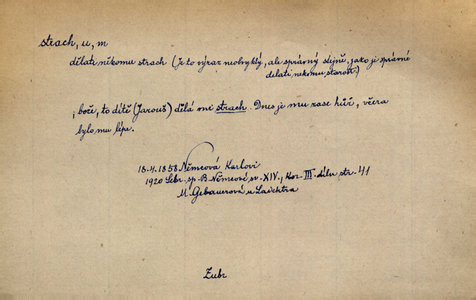 strach, u, m
dělati někomu strach (Je to výraz neobvyklý, ale správný stejně, jako je správné
dělati někomu starost.)
, bože, to dítě (Jarouš) dělá mě strach. Dnes je mu zase hůř, včera
bylo mu lépe.
18.4.1858 Němcová Karlovi
1920 Sebr. sp. B. Němcové sv. XIV., Kor. III. dílu str. 41
M. Gebauerová u Laichtra
Zubr